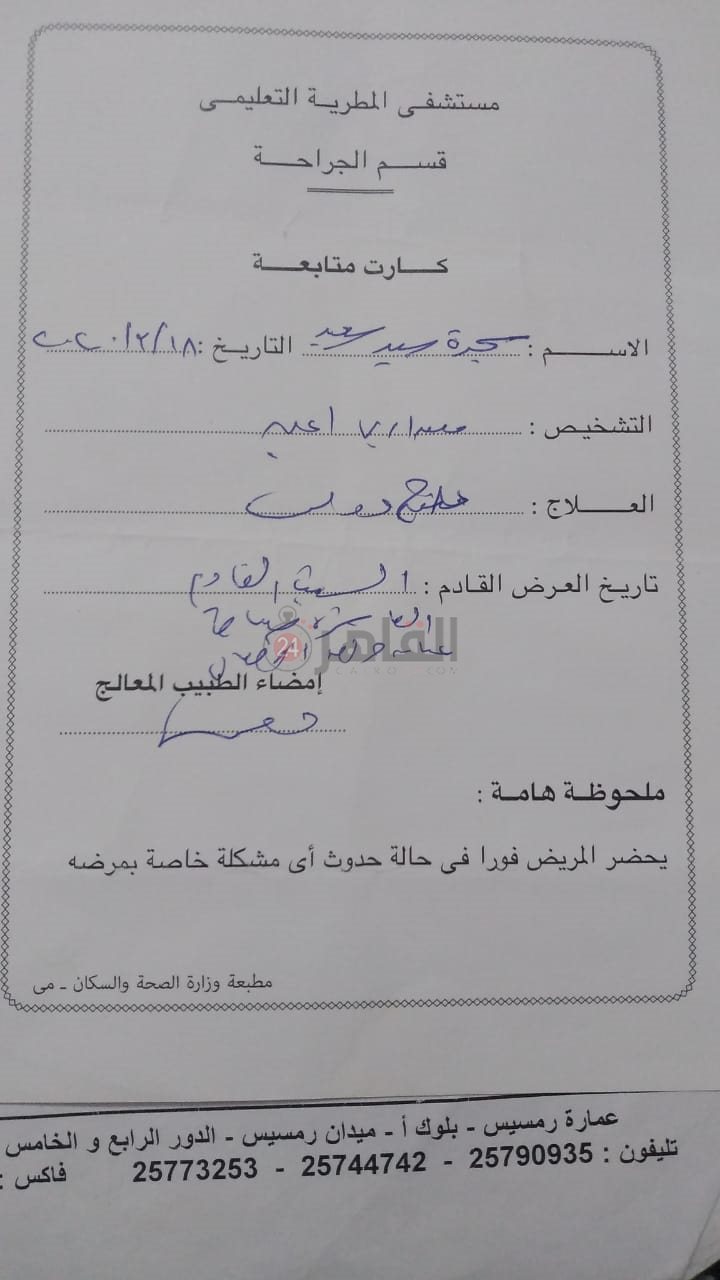 مستشفى المطرية التعليمى
قسم الجراحة
كارت متابعة
الاسم : سيد سعيد التاريخ : ١٨/٢/٢٠٢٠
التشخيص :
العلاج :
تاريخ العرض القادم : السبت القادم
العاشرة صباحا
القاهرة 24
CAIRO24.COM
إمضاء الطبيب المعالج
ملحوظة هامة :
يحضر المريض فورا فى حالة حدوث أى مشكلة خاصة بمرضه
مطبعة وزارة الصحة والسكان - مى
عمارة رمسيس - بلوك أ - ميدان رمسيس - الدور الرابع و الخامس
تليفون : 25790935 - 25744742 - 25773253 فاكس :